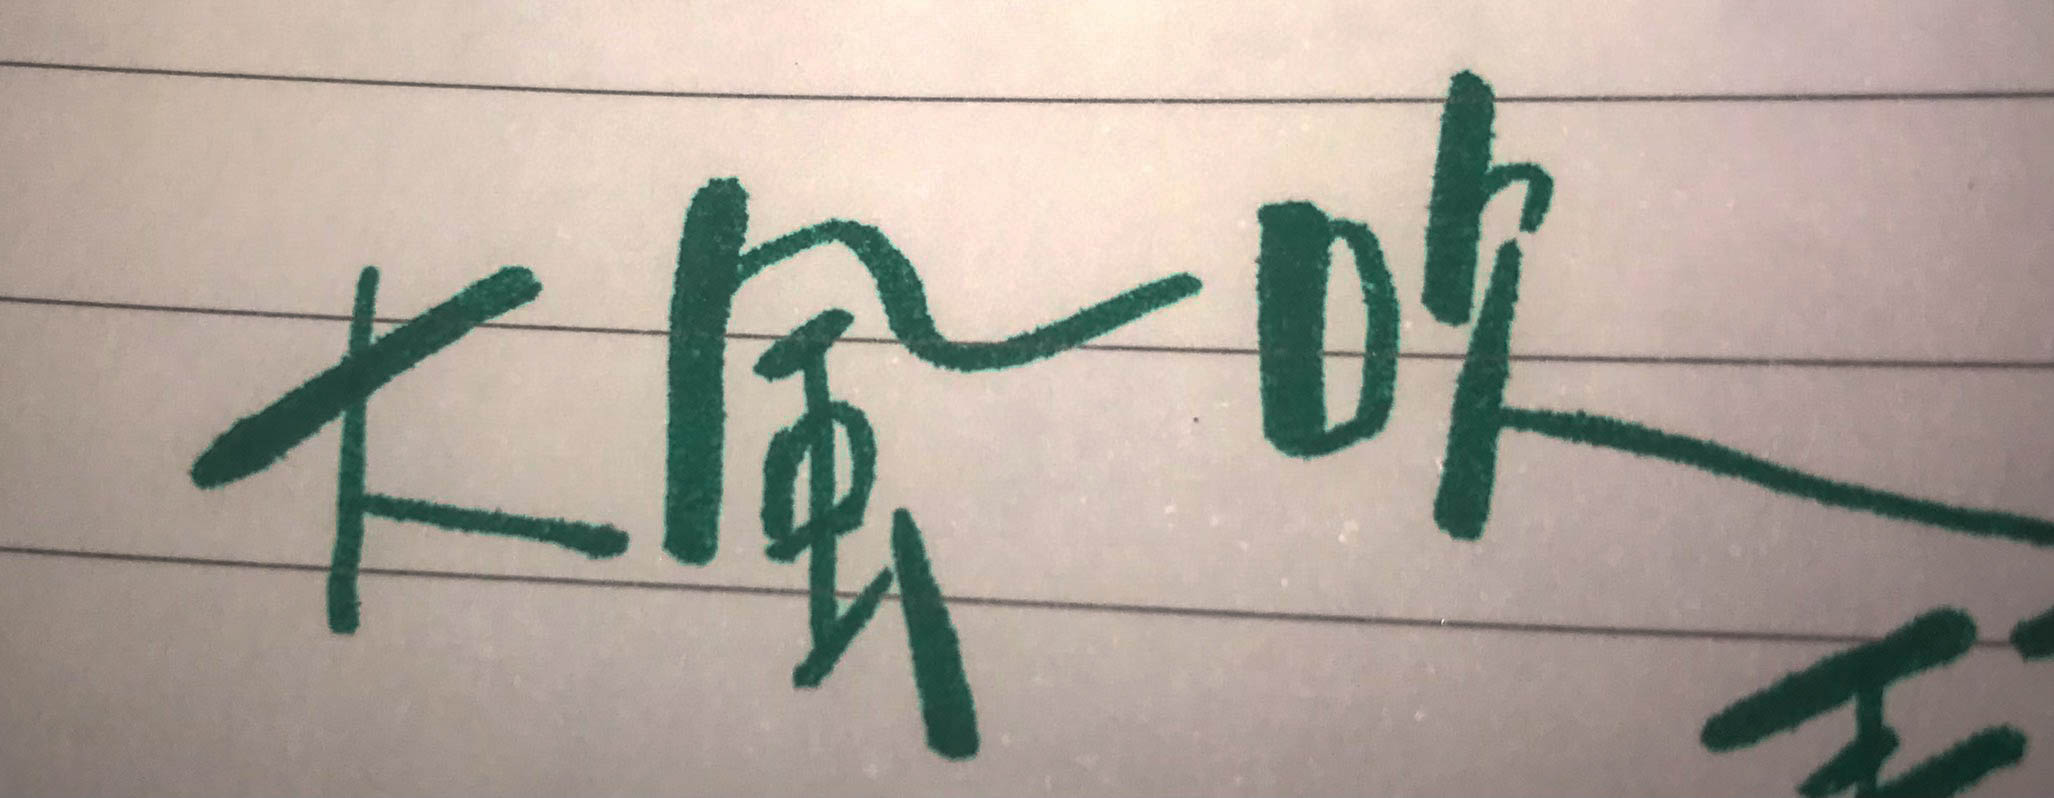 大風吹